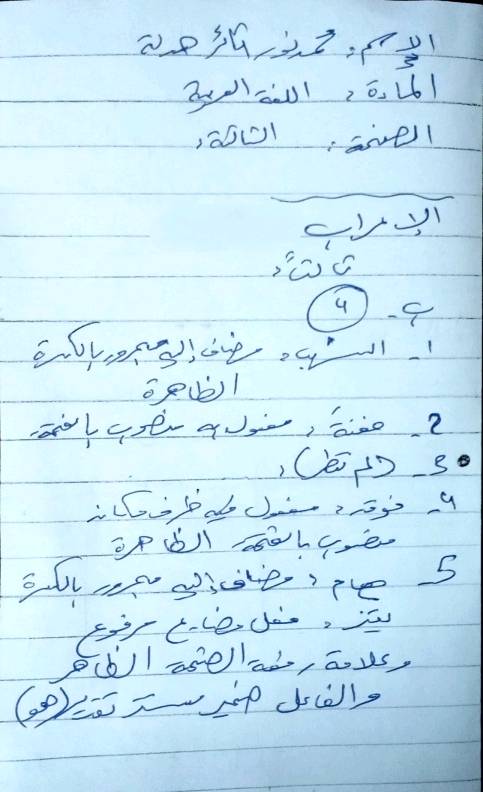 الإسم: محمد نور ثائر هدلة
المادة: اللغة العربية
الصفحة: الثالثة:
الإعراب
ثالثاً:
ب- ٤
1- الشهب: مضاف إليه مجرور بالكسرة
الظاهرة
2- مفعول به منصوب بالفتحة
3- (لم تطل):
4- فوقه: مفعول فيه ظرف مكان
منصوب بالفتحة الظاهرة
5- هام: مضاف إليه مجرور بالكسرة
فعل مضارع مرفوع
وعلامة رفعه الضمة الظاهر
والفاعل ضمير مستتر تقديره (هو)